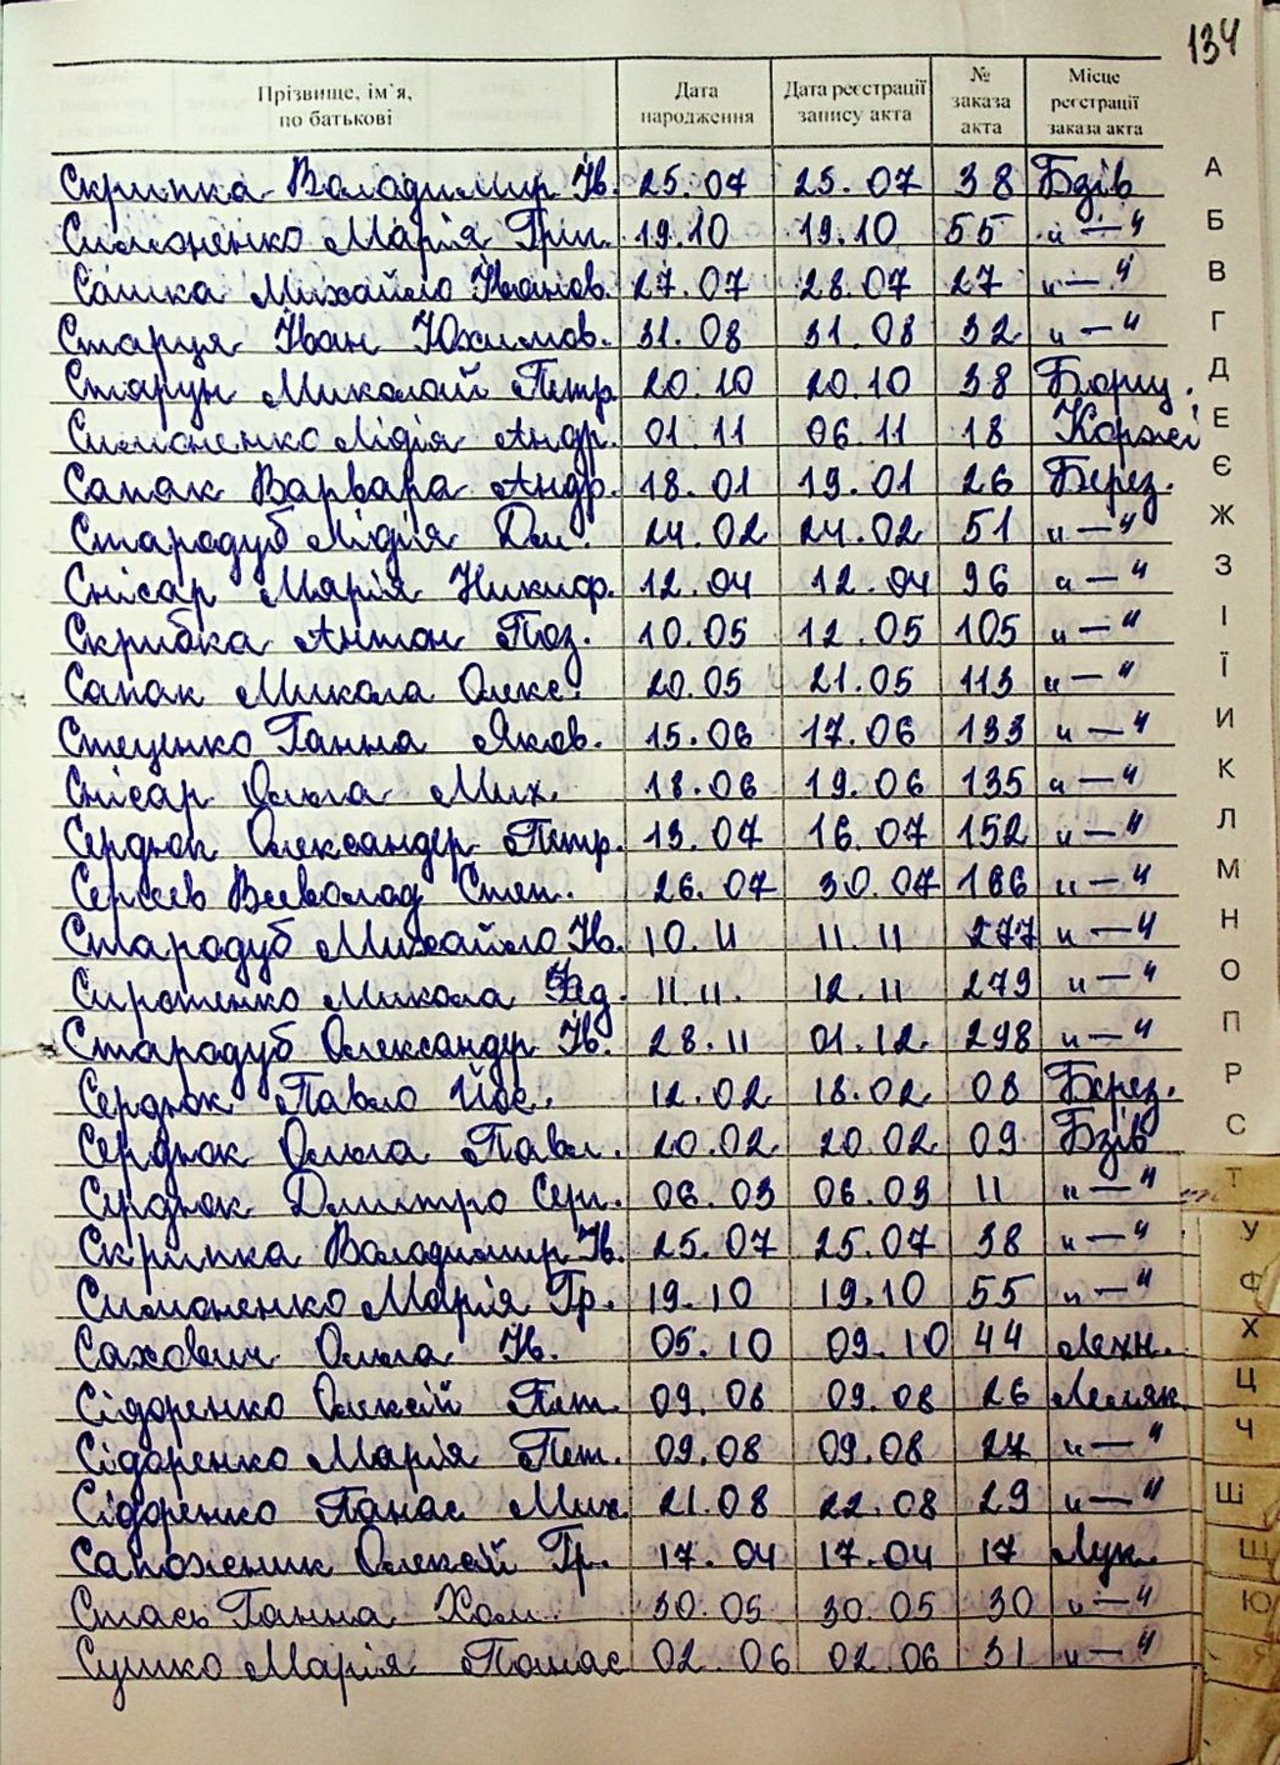 134
Прізвище, ім'я, по батькові Дата народження Дата реєстрації запису акта № заказа акта Місце реєстрації заказа акта
Скрипка Володимир Ів. 25.07 25.07 38 Бзів
Симоненко Марія Григ. 19.10 19.10 55 "—"
Сашка Михайло Іванов. 27.07 28.07 27 "—"
Старця Іван Юхимов. 31.08 31.08 32 "—"
Старун Миколай Петр. 20.10 20.10 38 Борщ.
Симоненко Лідія Андр. 01.11 06.11 18 Коржі
Сапак Варвара Андр. 18.01 19.01 26 Берез.
Стародуб Лідія Дм. 24.02 24.02 51 "—"
Снісар Марія Никиф. 12.04 12.04 96 "—"
Скрибка Антон Поз. 10.05 12.05 105 "—"
Сапак Микола Олекс. 20.05 21.05 113 "—"
Стеценко Ганна Яков. 15.06 17.06 133 "—"
Снісар Ольга Мих. 18.06 19.06 135 "—"
Сердюк Олександер Петр. 13.07 16.07 152 "—"
Сергєєв Всеволод Степ. 26.07 30.07 166 "—"
Стародуб Михайло Ів. 10.11 11.11 277 "—"
Сиротенко Микола Фед. 11.11. 12.11 279 "—"
Стародуб Олександер Ів. 28.11 01.12. 298 "—"
Сердюк Павло Йос. 12.02 18.02 08 Берез.
Сердюк Ольга Павл. 20.02 20.02 09 Бзів
Сердюк Дмитро Серг. 06.03 06.03 11 "—"
Скрипка Володимир Ів. 25.07 25.07 38 "—"
Симоненко Марія Гр. 19.10 19.10 55 "—"
Сахович Ольга Ів. 05.10 09.10 44 Лехн.
Сідоренко Олексій Пет. 09.08 09.08 26 Лемляк
Сідоренко Марія Пет. 09.08 09.08 27 "—"
Сідоренко Панас Мих. 21.08 22.08 29 "—"
Сапожник Олексій Гр. 17.04 17.04 17 Лук.
Стась Ганна Хом. 30.05 30.05 30 "—"
Сушко Марія Панас 02.06 02.06 31 "—"
А
Б
В
Г
Д
Е
Є
Ж
З
І
Ї
И
К
Л
М
Н
О
П
Р
С
Т
У
Ф
Х
Ц
Ч
Ш
Щ
Ю
Я